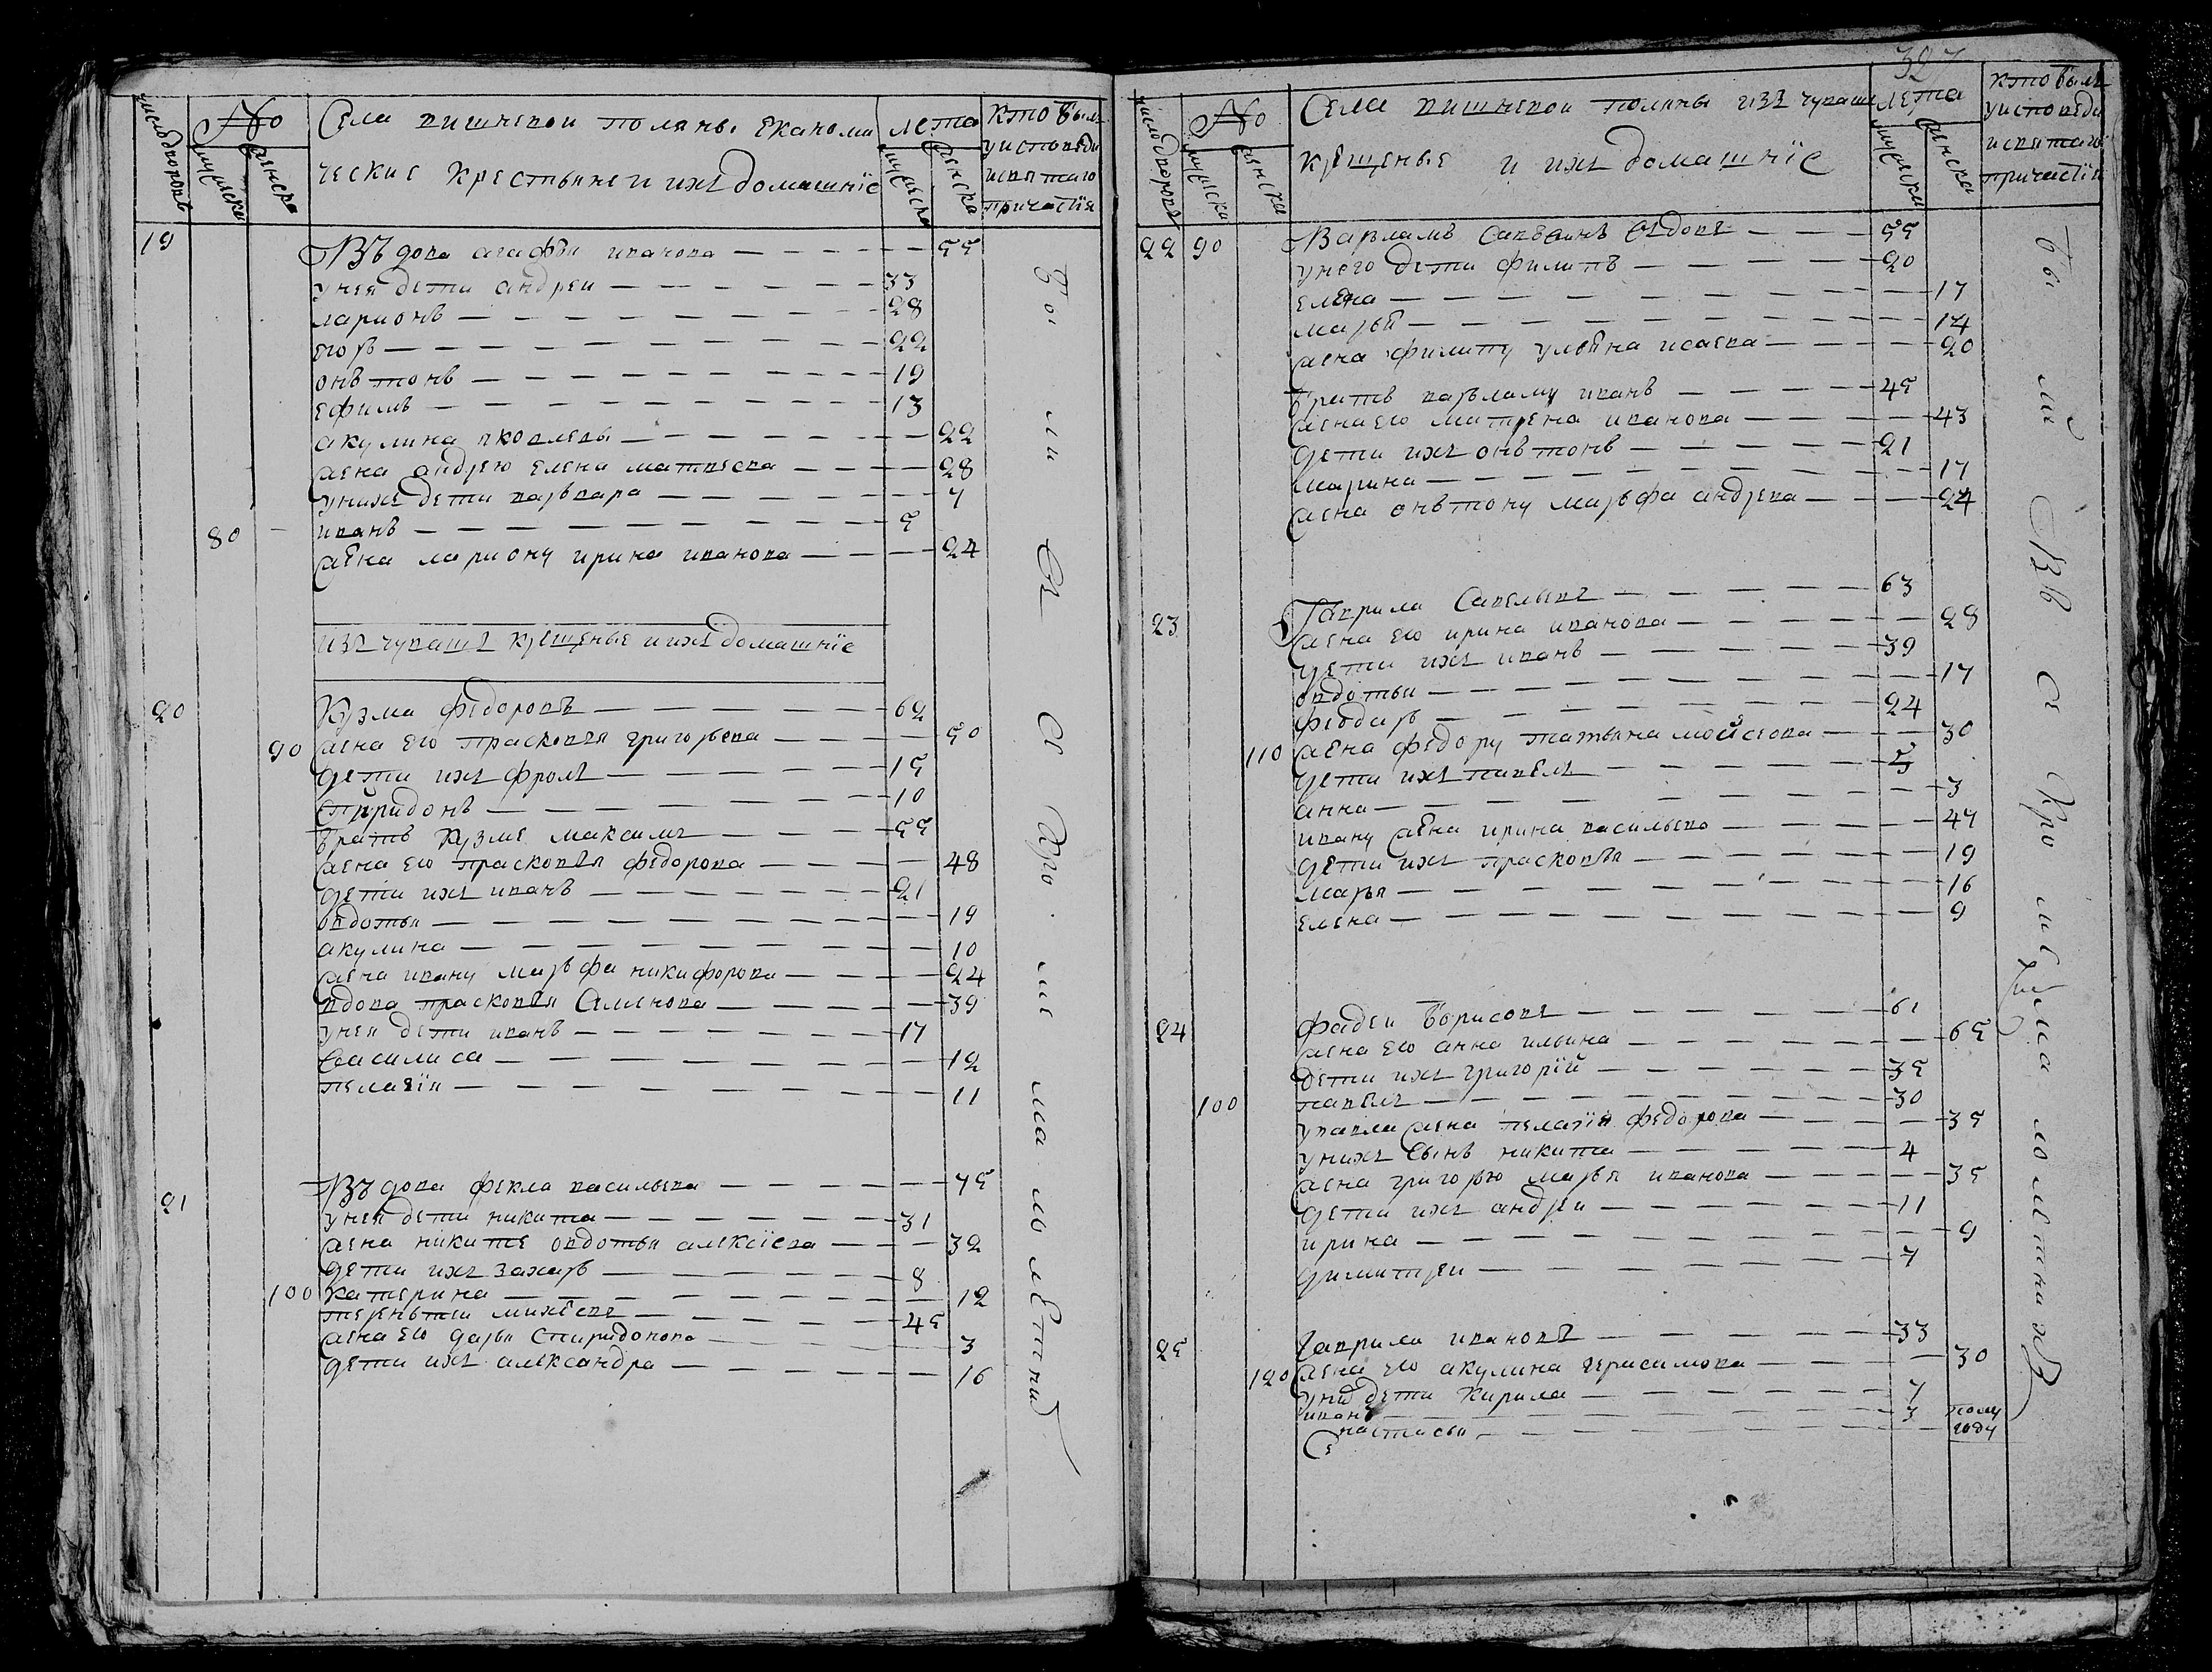 число дворовъ
№
мужеска
женска
Села вишневой поляны Еканоми
ческие крестьяне и ихъ домашнїе
лета
мужеска
женска
кто былъ
у исповеди
и святаго
причастїя
19 Въдова агафья иванова — 55
у нея дети андреи — 33
ларионъ — 28
егоръ — 22
онътонъ — 19
ефимъ — 13
акулина яковлева — 22
жена андрею елена матвеева — 28
у нихъ дети варъвара — 7
80 иванъ — 5
жена лариону ирина иванова — 24
изъ чувашъ крещеные и ихъ домашнїе
20 Кузма федоровъ — 62
90 жена его прасковья григорьева — 50
дети ихъ фролъ — 15
спиридонъ — 10
братъ кузме максимъ — 55
жена его прасковья федорова — 48
дети ихъ иванъ — 21
овдотья — 19
акулина — 10
жена ивану маръфа никифорова — 24
вдова прасковья Семенова — 39
у нея дети иванъ — 17
василиса — 12
пелагїя — 11
21 Въдова фекла васильева — 75
у нея дети никита — 31
жена никите овдотья алексїева — 32
дети ихъ захаръ — 8
100 катерина — 12
тереньтеи михеевъ — 45
жена его дарья спиридонова — 3
дети ихъ александра — 16
Бы ли въ с кро ме ма ло летнихъ
327
число дворовъ
№
мужеска
женска
Села вишневой поляны изъ чувашъ
крещеные и ихъ домашнїе
лета
мужеска
женска
кто былъ
у исповеди
и святаго
причастїя
22 90 Варламъ Савъвинъ вдовъ — 55
у него дети филипъ — 20
елена — 17
марья — 14
жена филипу ульяна исаева — 20
братъ варъламу иванъ — 45
жена его матрена иванова — 43
дети ихъ онътонъ — 21
марина — 17
жена онътону маръфа андрева — 24
23 Гаврила Савельевъ — 63
жена его ирина иванова — 28
дети ихъ иванъ — 39
овдотья — 17
феодаръ — 24
110 жена федору татьяна мойсеова — 30
дети ихъ павелъ — 5
анна — 3
ивану жена ирина васильева — 47
дети ихъ прасковья — 19
марья — 16
елена — 9
24 фадеи борисовъ — 61
жена его анна ильина — 65
дети ихъ григорїй — 35
100 павелъ — 30
у павла жена пелагїя федорова — 35
у нихъ сынъ никита — 4
жена григорью марья иванова — 35
дети ихъ андреи — 11
ирина — 9
димитреи — 7
25 Гаврила ивановъ — 33
120 жена его акулина герасимова — 30
у нихъ дети кирила — 7
иванъ — 3
настасья — полу году
бы ли Въ с кро ме ма ло ле тнихъ